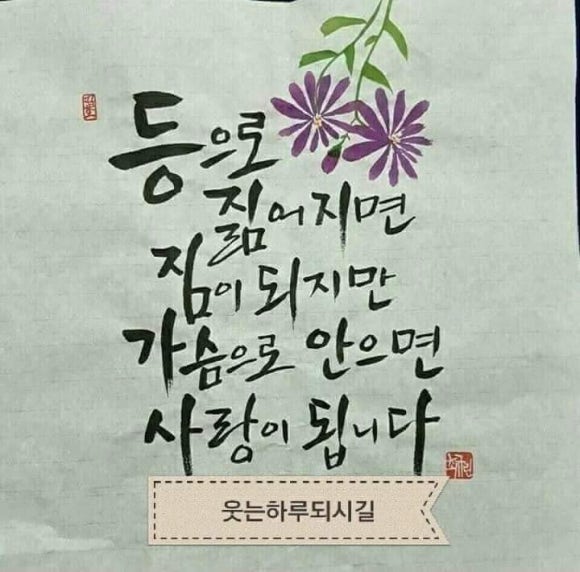 등으로
짊어지면
짐이 되지만
가슴으로 안으면
사랑이 됩니다
웃는하루되시길